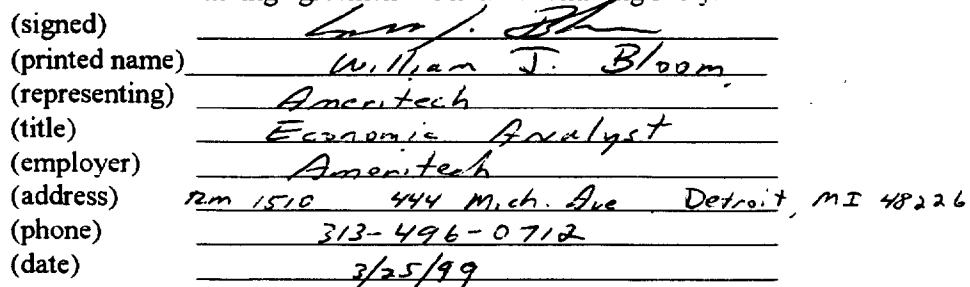 (signed)
(printed name) William J. Bloom
(representing) Ameritech
(title) Economic Analyst
(employer) Ameritech
(address) rm 1510 444 Mich. Ave Detroit, MI 48226
(phone) 313-496-0712
(date) 3/25/99